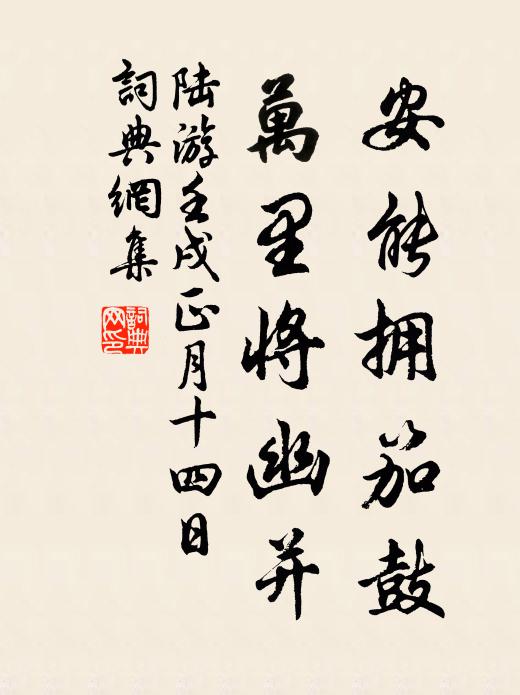 安能拥笳鼓
萬里将幽并
陆游壬戌正月十四日
詞典網集
詞典网印